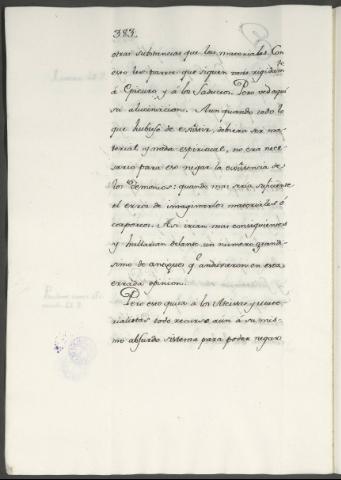 383.
otras substancias que las materiales. Con
esto les parece que siguen mas rigidam.te
á Epicuro y á los Saduceos. Pero ved aqui
su alucinacion. Aun quando todo lo
que hubiese de existir, debiera ser ma-
terial, y nada espiritual, no era nece-
sario para eso negar la existencia de
los Demonios: quando mas seria suficiente
el error de imaginarlos materiales ó
corporeos. Asi irian mas consiguientes
y hallarian delante un numero grandi-
simo de antiguos q.e anduvieron en esta
errada opinion.
Pero esto quita á los Ateistas y mate-
rialistas todo recurso aun á su mis-
mo absurdo sistema para poder negar